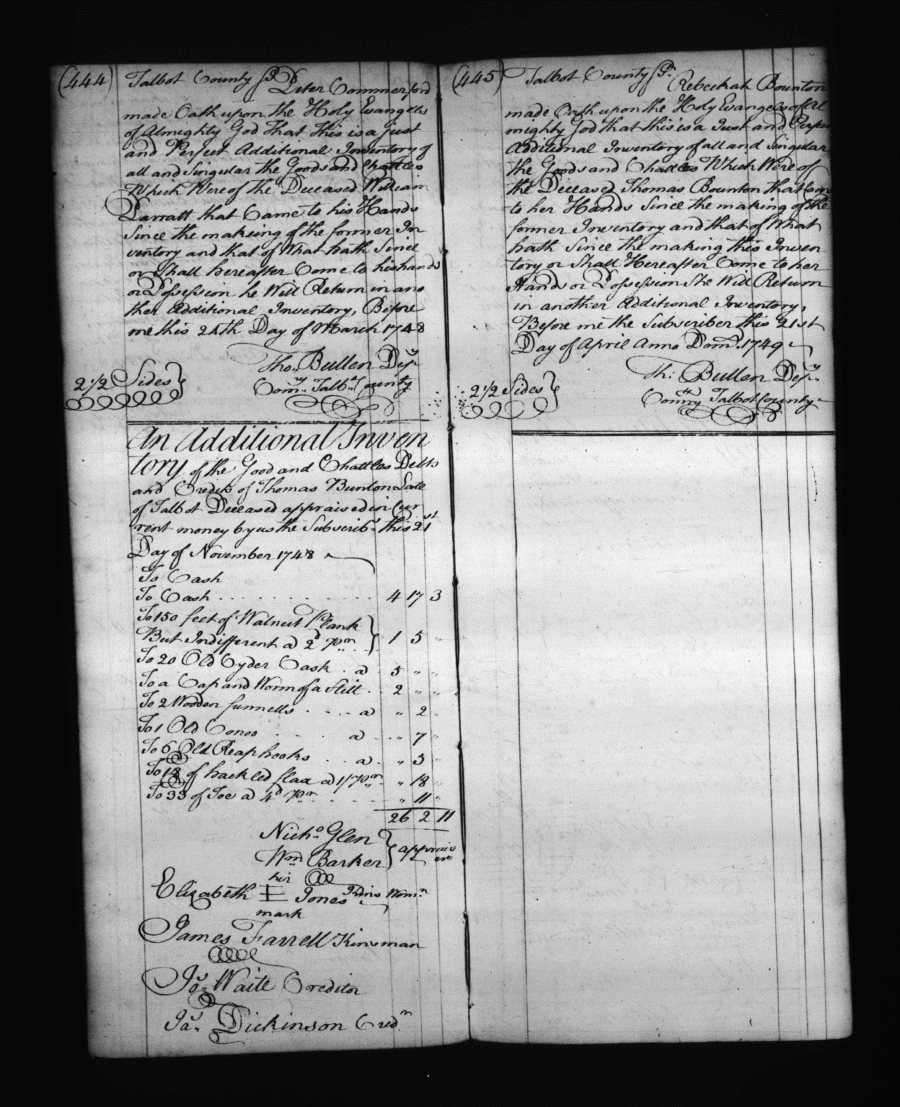 (444)
Talbot County ss Peter Commerford
made Oath upon the Holy Evangels
of Almighty God That this is a just
and Perfect Additional Inventory of
all and Singular the Goods and Chattles
Which Were of the Deceased William
Parratt that Came to his Hands
Since the makeing of the former In
ventory and that of What hath Since
or Shall hereafter Come to his hands
or Possession he Will Return in ano
ther Additional Inventory, Before
me this 24th Day of March 1748
Tho. Bullen Depy
2 1/2 Sides
Comry Talbt County
An Additional Inven
tory of the Good and Chattles Debts
and Credits of Thomas Bunton Late
of Talbot Deceased appraised in Cur
rent money by us the Subscribrs this 21st
Day of November 1748
To Cash
To Cash . . . . . . . . . 4 17 3
To 150 feet of Walnut Plank
But Indifferent a 2d Pr 1 5 "
To 20 Old Cyder Cask . a 5 " "
To a Cap and Worm of a Still . . 2 " "
To 2 Wooden funnells . . . a " 2 "
To 1 Old Conoo . . . a . " 7 "
To 6 Old Reaphooks . . a . " 3 "
To 18 of hackled flax a 1/ Pr " 18 "
To 33 of Toe a 4d Pr . . . " 11 "
26 2 11
Nicho Glen
Wm Barker
appraisers
her
Elizabeth Jones
mark
James Farrell Kinsman
Jo. Waite Creditor
Ja. Dickinson Credr
(445)
Talbot County ss Rebeckah Bounton
made Oath upon the Holy Evangels of Al
mighty God that this is a Just and Perfect
Additional Inventory of all and Singular
the Goods and Chattles Which Were of
the Deceased Thomas Bounton that Came
to her Hands Since the making of the
former Inventory and that of What
hath Since the making this Inven
tory or Shall Hereafter Come to her
Hands or Possession She Will Return
in another Additional Inventory,
Before me the Subscriber this 21st
Day of April Anno Dom. 1749
Th: Bullen Depy
2 1/2 Sides
Comry Talbot County